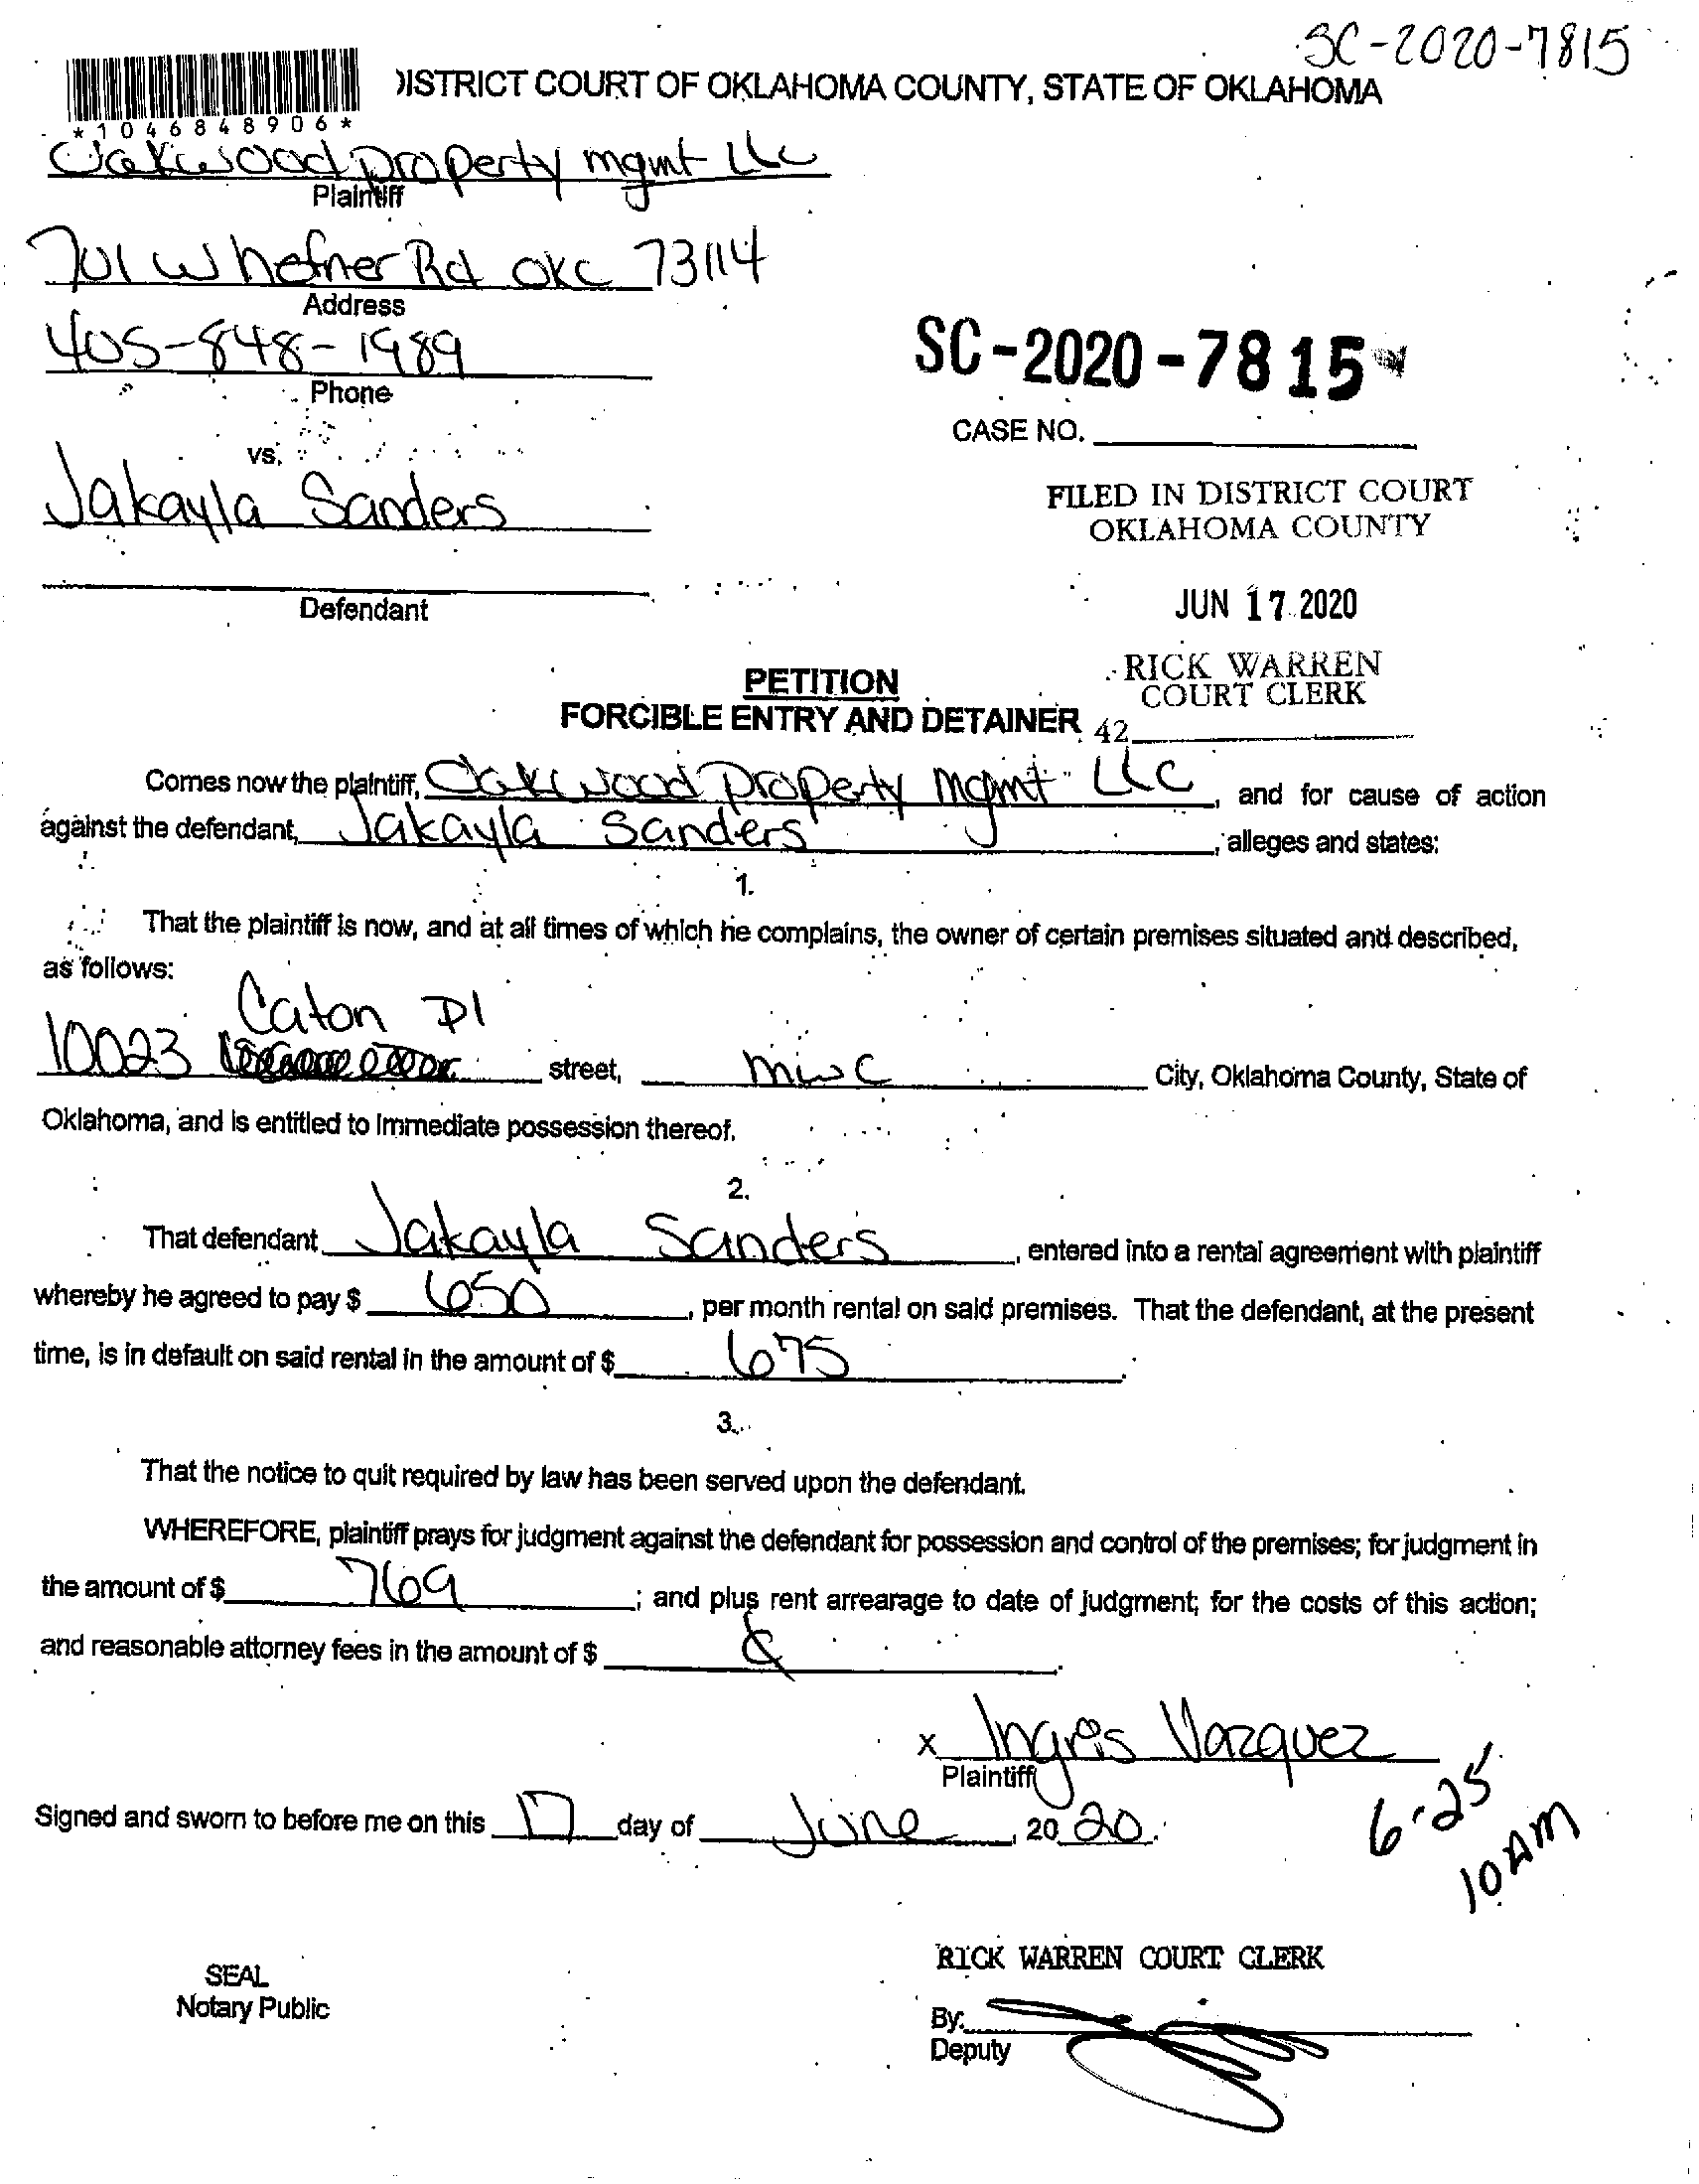 SC-2020-7815
DISTRICT COURT OF OKLAHOMA COUNTY, STATE OF OKLAHOMA
*1046848906*
Oakwood property mgmt LLC
Plaintiff
701 W hefner Rd OKC 73114
Address
405-848-1989
Phone
SC-2020-7815
CASE NO.
vs.
Jakayla Sanders
FILED IN DISTRICT COURT
OKLAHOMA COUNTY
Defendant
JUN 17 2020
RICK WARREN
COURT CLERK
PETITION
FORCIBLE ENTRY AND DETAINER
42
Comes now the plaintiff, Oakwood Property Mgmt LLC, and for cause of action
against the defendant, Jakayla Sanders, alleges and states:
1.
That the plaintiff is now, and at all times of which he complains, the owner of certain premises situated and described,
as follows:
Caton Pl
10023 street, MWC City, Oklahoma County, State of
Oklahoma, and is entitled to immediate possession thereof.
2.
That defendant Jakayla Sanders, entered into a rental agreement with plaintiff
whereby he agreed to pay $ 650, per month rental on said premises. That the defendant, at the present
time, is in default on said rental in the amount of $ 675.
3.
That the notice to quit required by law has been served upon the defendant.
WHEREFORE, plaintiff prays for judgment against the defendant for possession and control of the premises; for judgment in
the amount of $ 769; and plus rent arrearage to date of judgment; for the costs of this action;
and reasonable attorney fees in the amount of $
x Ingris Vazquez
Plaintiff
Signed and sworn to before me on this 17 day of June, 20 20.
6-25
10AM
RICK WARREN COURT CLERK
SEAL
Notary Public
By:
Deputy